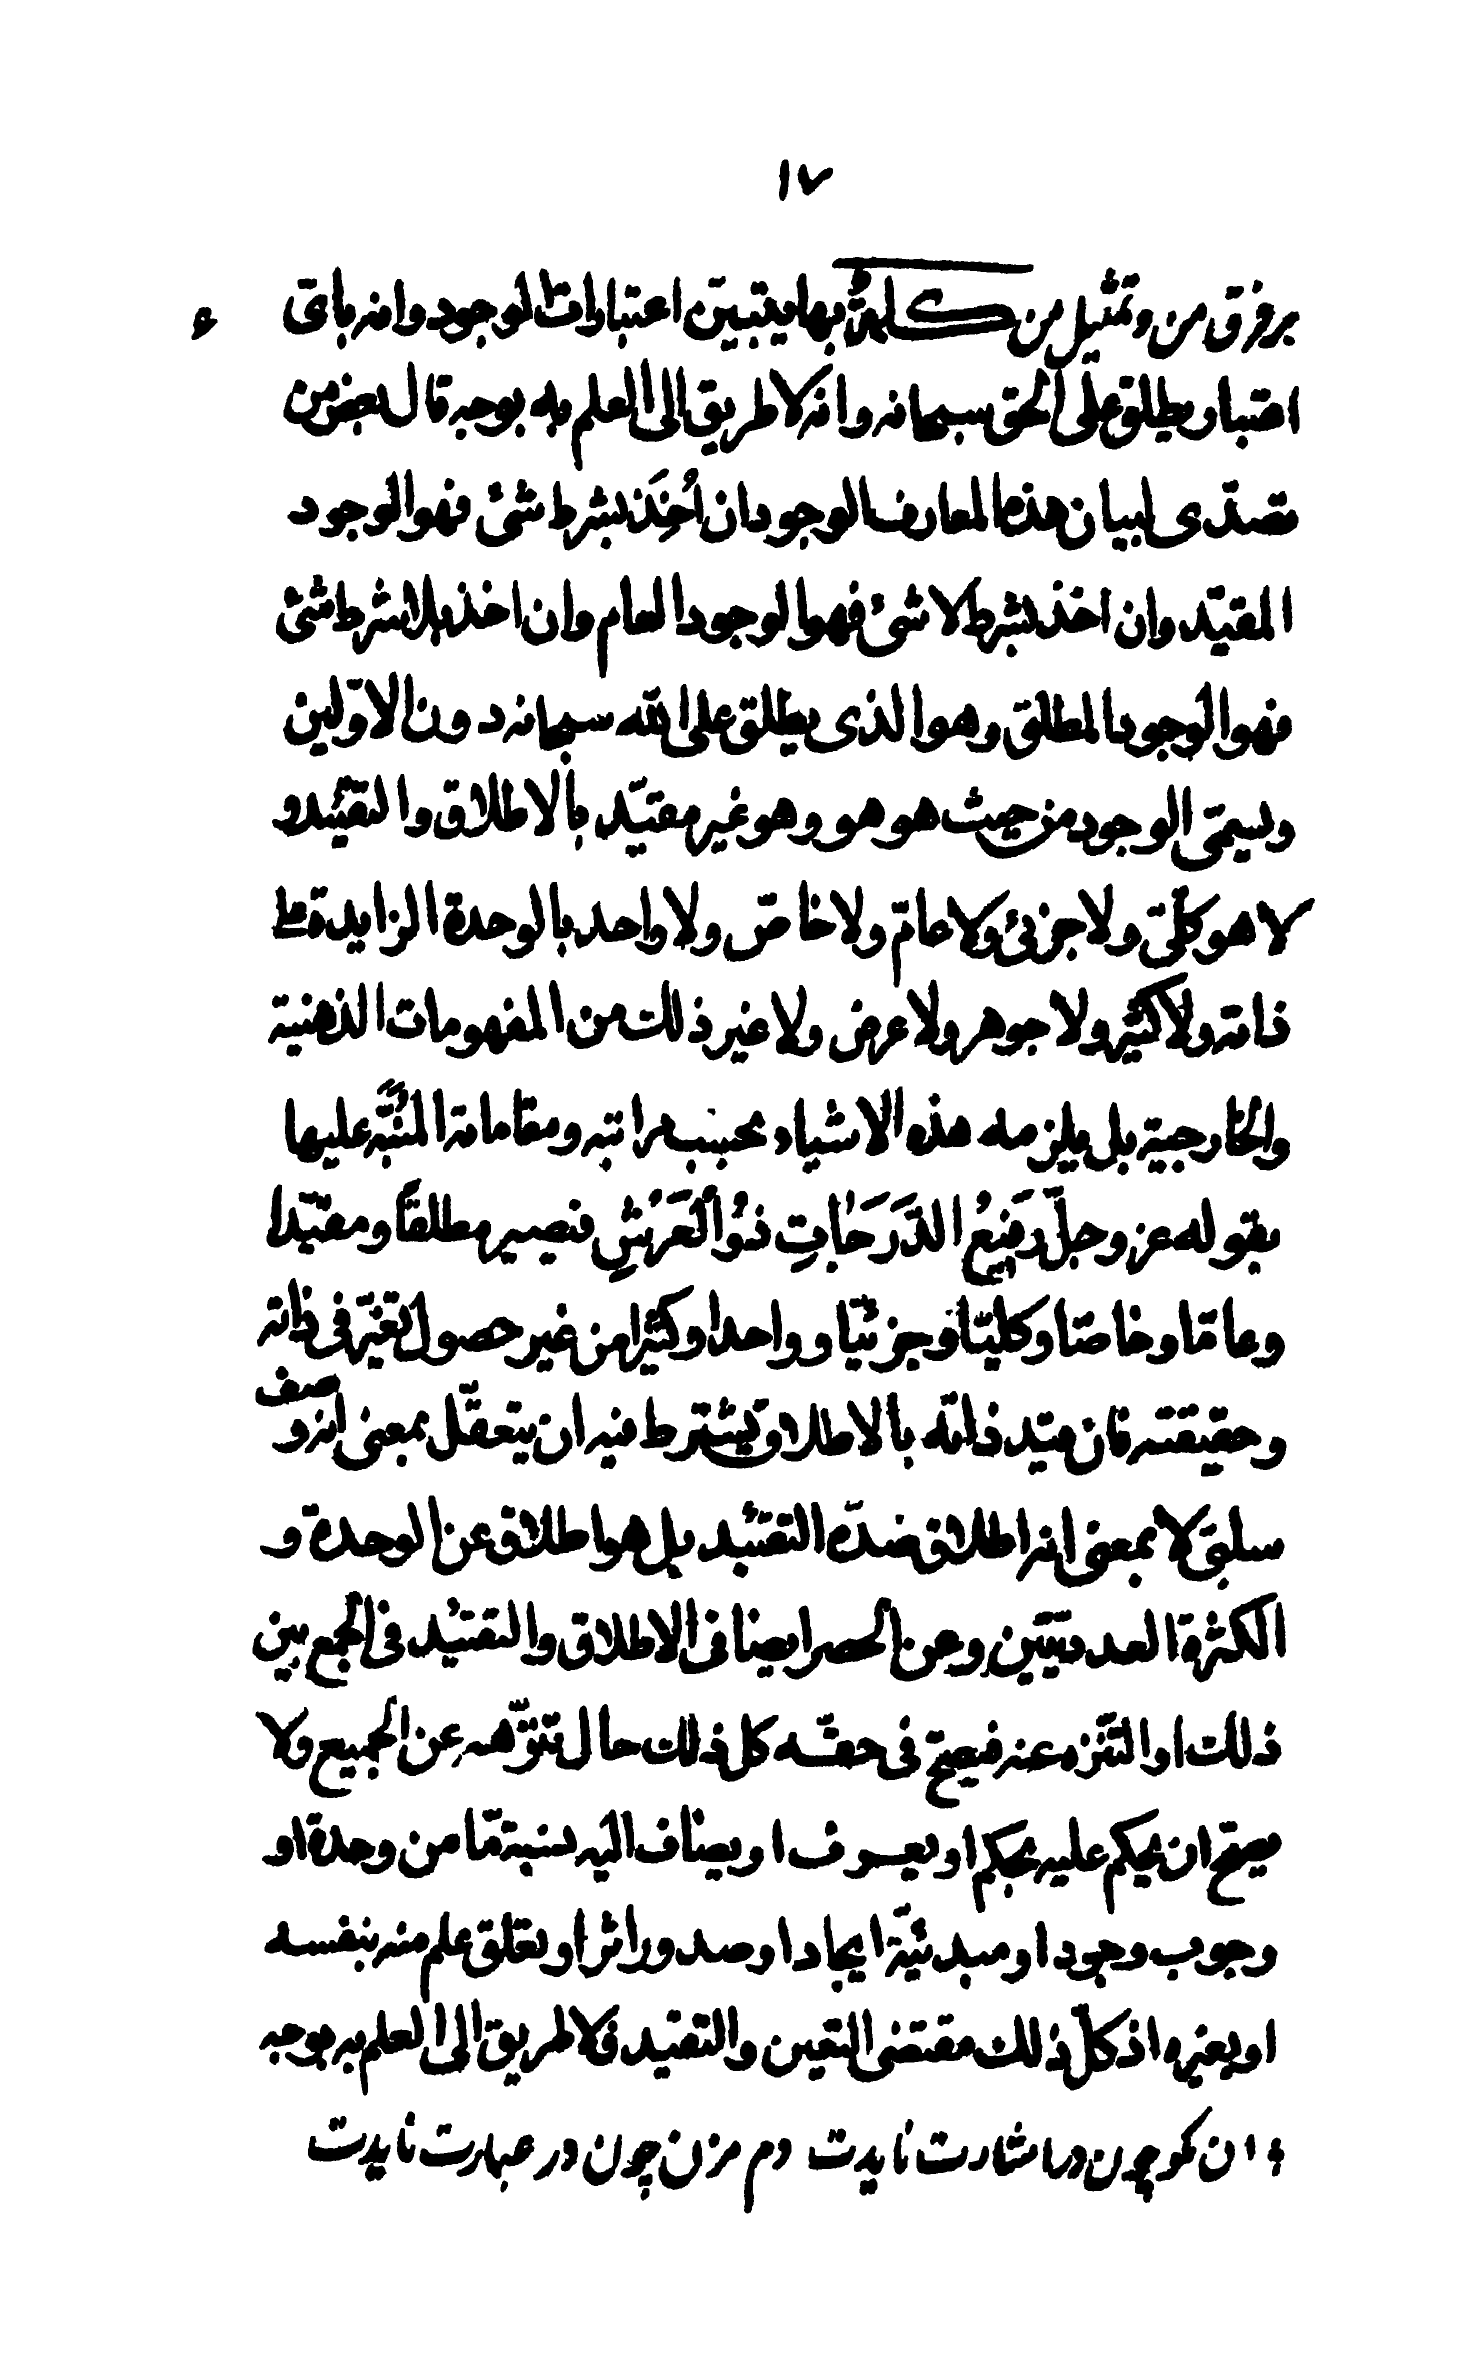 ١٧
بر فرق من و تمثيل من كلمةٌ بها يتبيّن اعتبارات الوجود وانه باى
ء
اعتبار يطلق على الحق سبحانه وانه لا طريق الى العلم به بوجه قال بعض من
تصدّى لبيان هذه المعارف الوجود ان اُخِذَ بشرط شئ فهو الوجود
المقيّد وان اخذ بشرط لا شئ فهو الوجود العام وان اخذ بلا شرط شئ
فهو الوجود المطلق وهو الذى يطلق على الله سبحانه دون الاوّلين
ويسمّى الوجود من حيث هو هو وهو غير مقيّد بالاطلاق والتقييد و
لا هو كلّى ولا جزئى ولا عامّ ولا خاصّ ولا واحد بالوحدة الزايدة على
ذاته ولا كثير ولا جوهر ولا عرض ولا غير ذلك من المفهومات الذهنية
والخارجية بل يلزمه هذه الاشياء بحسب مراتبه ومقاماته المُنَبَّه عليها
بقوله عز وجلّ رَفيعُ الدَّرَجَاتِ ذُو الْعَرْشِ فيصير مطلقًا ومقيّدا
وعامّا وخاصّا وكليّا وجزئيّا وواحدا وكثيرا من غير حصول تغيّر فى ذاته
وحقيقته فان قيّد ذاته بالاطلاق يشترط فيه ان يتعقّل بمعنى انه و
صف
سلبىّ لا بمعنى انه اطلاق ضدّه التقييد بل هو اطلاق عن الوحدة و
الكثرة العدديّتين وعن الحصر ايضا فى الاطلاق والتقييد فى الجمع بين
ذلك او التنزّه عنه فيصحّ فى حقّه كل ذلك حال تنزّهه عن الجميع ولا
يصحّ ان يحكم عليه بحكم او يعرف او يضاف اليه نسبة مّا من وحدة او
وجوب وجود او مبدئيّة ايجاد او صدور اثر او تعلق علم منه بنفسه
او بغيره اذ كلّ ذلك مقتضى التعين والتقيد فلا طريق الى العلم به بوجه
ان مكو چون در اشارت نايدت دم مزن چون در عبارت نايدت